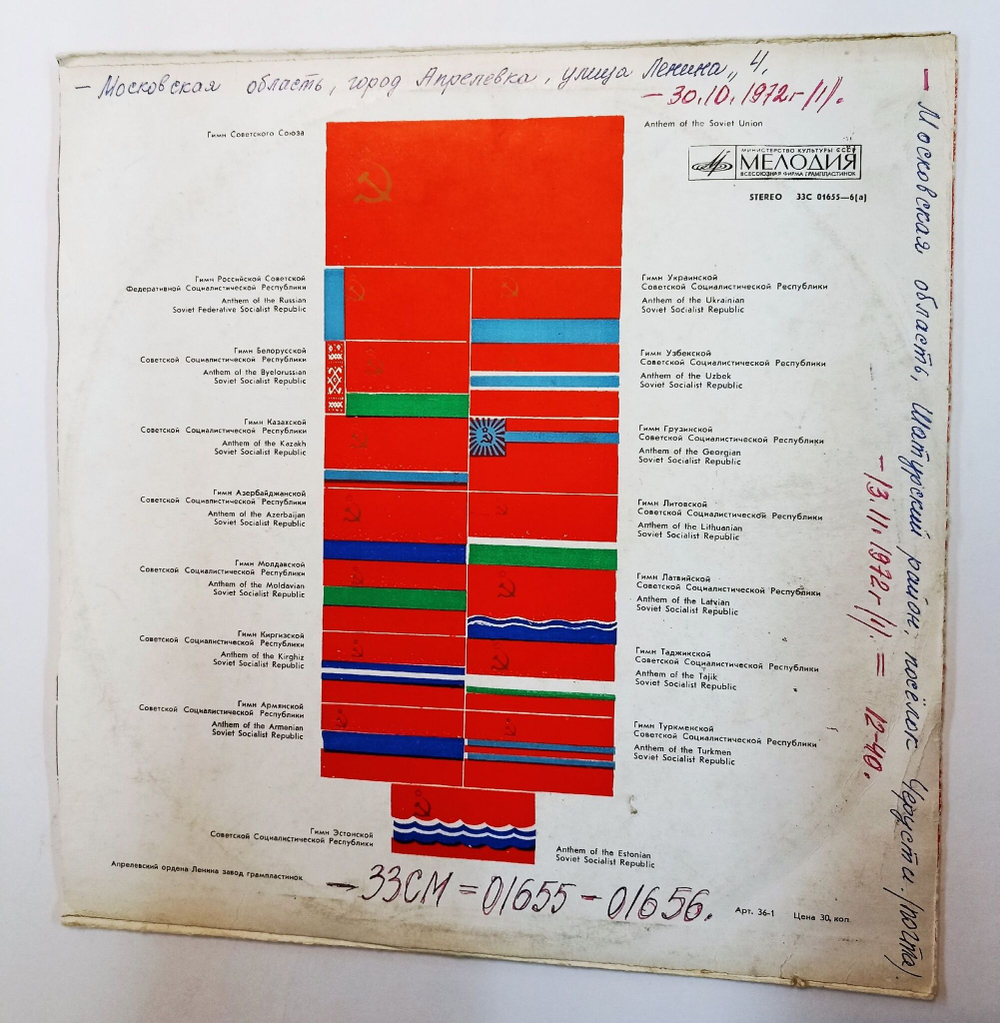 — Московская область, город Апрелевка, улица Ленина, 4.
— 30.10.1972г /1/.
Гимн Советского Союза
Anthem of the Soviet Union
МИНИСТЕРСТВО КУЛЬТУРЫ СССР
МЕЛОДИЯ
ВСЕСОЮЗНАЯ ФИРМА ГРАМПЛАСТИНОК
STEREO 33С 01655—6(а)
Гимн Российской Советской
Федеративной Социалистической Республики
Anthem of the Russian
Soviet Federative Socialist Republic
Гимн Украинской
Советской Социалистической Республики
Anthem of the Ukrainian
Soviet Socialist Republic
Гимн Белорусской
Советской Социалистической Республики
Anthem of the Byelorussian
Soviet Socialist Republic
Гимн Узбекской
Советской Социалистической Республики
Anthem of the Uzbek
Soviet Socialist Republic
Гимн Казахской
Советской Социалистической Республики
Anthem of the Kazakh
Soviet Socialist Republic
Гимн Грузинской
Советской Социалистической Республики
Anthem of the Georgian
Soviet Socialist Republic
Гимн Азербайджанской
Советской Социалистической Республики
Anthem of the Azerbaijan
Soviet Socialist Republic
Гимн Литовской
Советской Социалистической Республики
Anthem of the Lithuanian
Soviet Socialist Republic
Гимн Молдавской
Советской Социалистической Республики
Anthem of the Moldavian
Soviet Socialist Republic
Гимн Латвийской
Советской Социалистической Республики
Anthem of the Latvian
Soviet Socialist Republic
Гимн Киргизской
Советской Социалистической Республики
Anthem of the Kirghiz
Soviet Socialist Republic
Гимн Таджинской
Советской Социалистической Республики
Anthem of the Tajik
Soviet Socialist Republic
Гимн Армянской
Советской Социалистической Республики
Anthem of the Armenian
Soviet Socialist Republic
Гимн Туркменской
Советской Социалистической Республики
Anthem of the Turkmen
Soviet Socialist Republic
Гимн Эстонской
Советской Социалистической Республики
Anthem of the Estonian
Soviet Socialist Republic
Апрелевский ордена Ленина завод грампластинок
— 33СМ = 01655 — 01656.
Арт. 36-1 Цена 30, коп.
— Московская область, Шатурский район, посёлок Черусти. /почта/
— 13.11.1972г /1/. = 12-40.